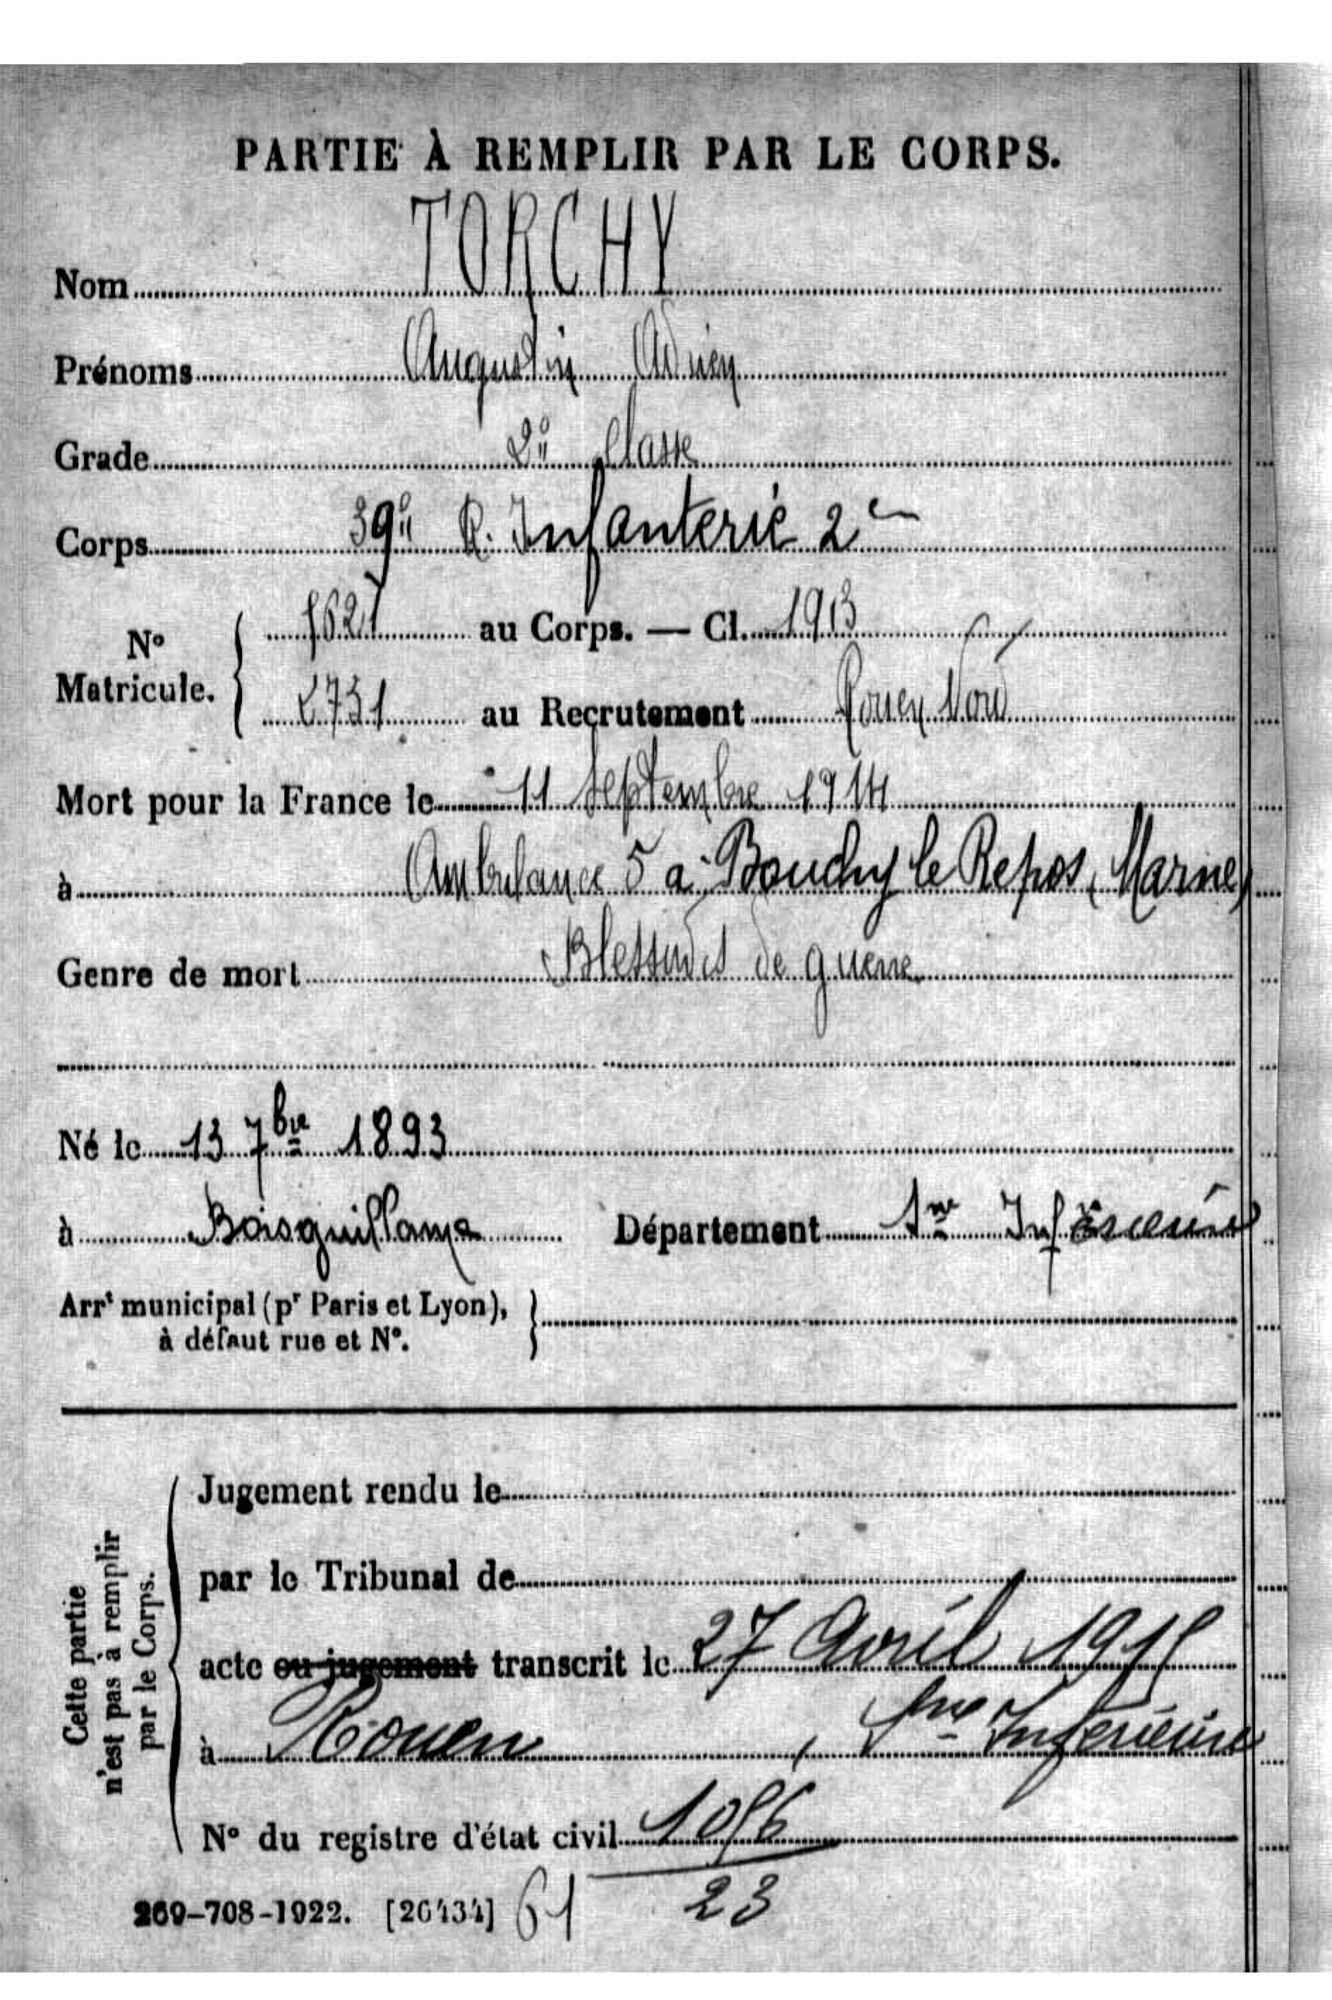 PARTIE À REMPLIR PAR LE CORPS.
Nom TORCHY
Prénoms Augustin Adrien
Grade 2e Classe
Corps 39e R. Infanterie
N° Matricule. au Corps. — Cl. 1913
2731 au Recrutement Rouen Nord
Mort pour la France le 11 Septembre 1914
à Ambulance 5 à Bouchy le Repos (Marne)
Genre de mort Blessures de guerre
Né le 13 7bre 1893
à Bosguillaume Département Sne Inférieure
Arrt municipal (pr Paris et Lyon),
à défaut rue et N°.
Cette partie
n'est pas à remplir
par le Corps.
Jugement rendu le
par le Tribunal de
acte ou jugement transcrit le 27 Avril 1915
à Rouen, Sne Inférieure
N° du registre d'état civil
269-708-1922. [26434] 61 23